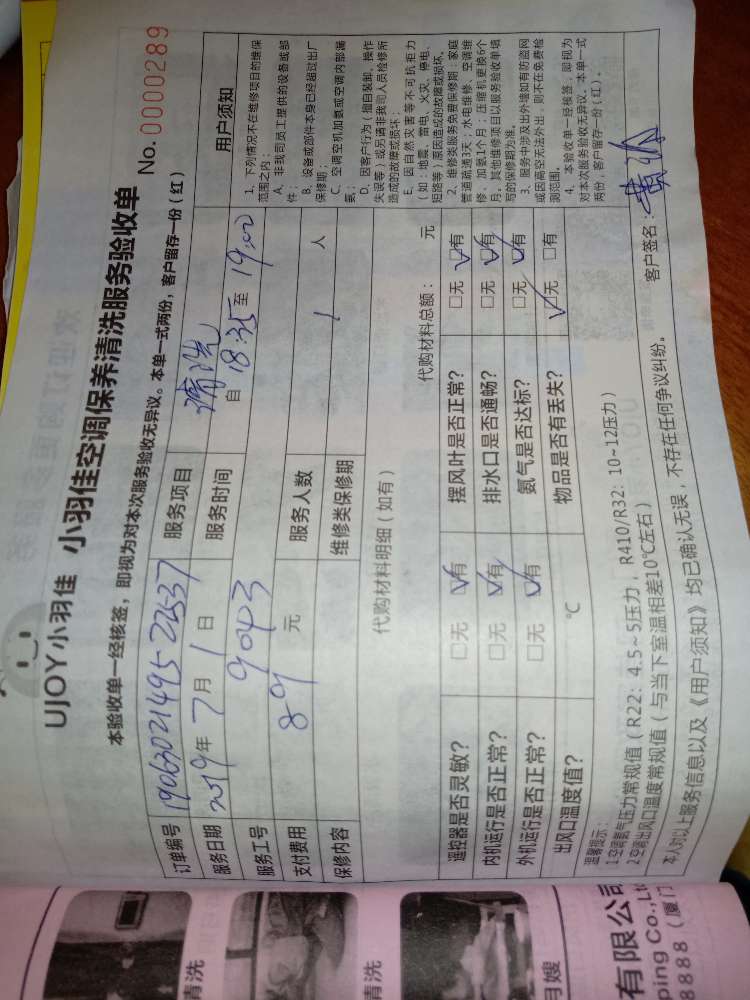 UJOY小羽佳 小羽佳空调保养清洗服务验收单
本验收单一经核签，即视为对本次服务验收无异议。本单一式两份，客户留存一份（红） No. 0000289
订单编号 服务项目 清洗 用户须知
服务日期 2019年 7月 1日 服务时间 自 18:35 至 19:00
服务工号 9043
支付费用 89 元 服务人数 1 人
保修内容 维修类保修期
代购材料明细（如有） 代购材料总额： 元
遥控器是否灵敏？ □无 ☑有 摆风叶是否正常？ □无 ☑有
内机运行是否正常？ □无 ☑有 排水口是否通畅？ □无 ☑有
外机运行是否正常？ □无 ☑有 氨气是否达标？ □无 ☑有
出风口温度值？ ℃ 物品是否有丢失？ ☑无 □有
1、下列情况不在维修项目的维保
范围之内；
A、非我司员工提供的设备或部
件；
B、设备或部件本身已经超过出厂
保修期；
C、空调空机加氨或空调内部漏
氨；
D、因客户行为（擅自装卸、操作
失误等）或另请非我司人员检修所
造成的故障或损坏；
E、因自然灾害等不可抗拒力
（如：地震、雷电、火灾、停电、
短路等）原因造成的故障或损坏。
2、维修类服务免费保修期：家庭
管道疏通3天，水电维修、空调维
修、加氨1个月；压缩机更换6个
月。其他维修项目以服务验收单填
写的保修期为准。
3、服务中涉及出外墙如有防盗网
或因高空无法外出，则不在免费检
测范围。
4、本验收单一经核签，即视为
对本次服务验收无异议。本单一式
两份，客户留存一份（红）。
温馨提示：
1.空调氨气压力常规值（R22：4.5~5压力，R410/R32：10~12压力）
2.空调出风口温度常规值（与当下室温相差10℃左右）
本人对以上服务信息以及《用户须知》均已确认无误，不存在任何争议纠纷。 客户签名：
清洗
清洗
月嫂
有限公司
ping Co.,Lt
8888（厦门